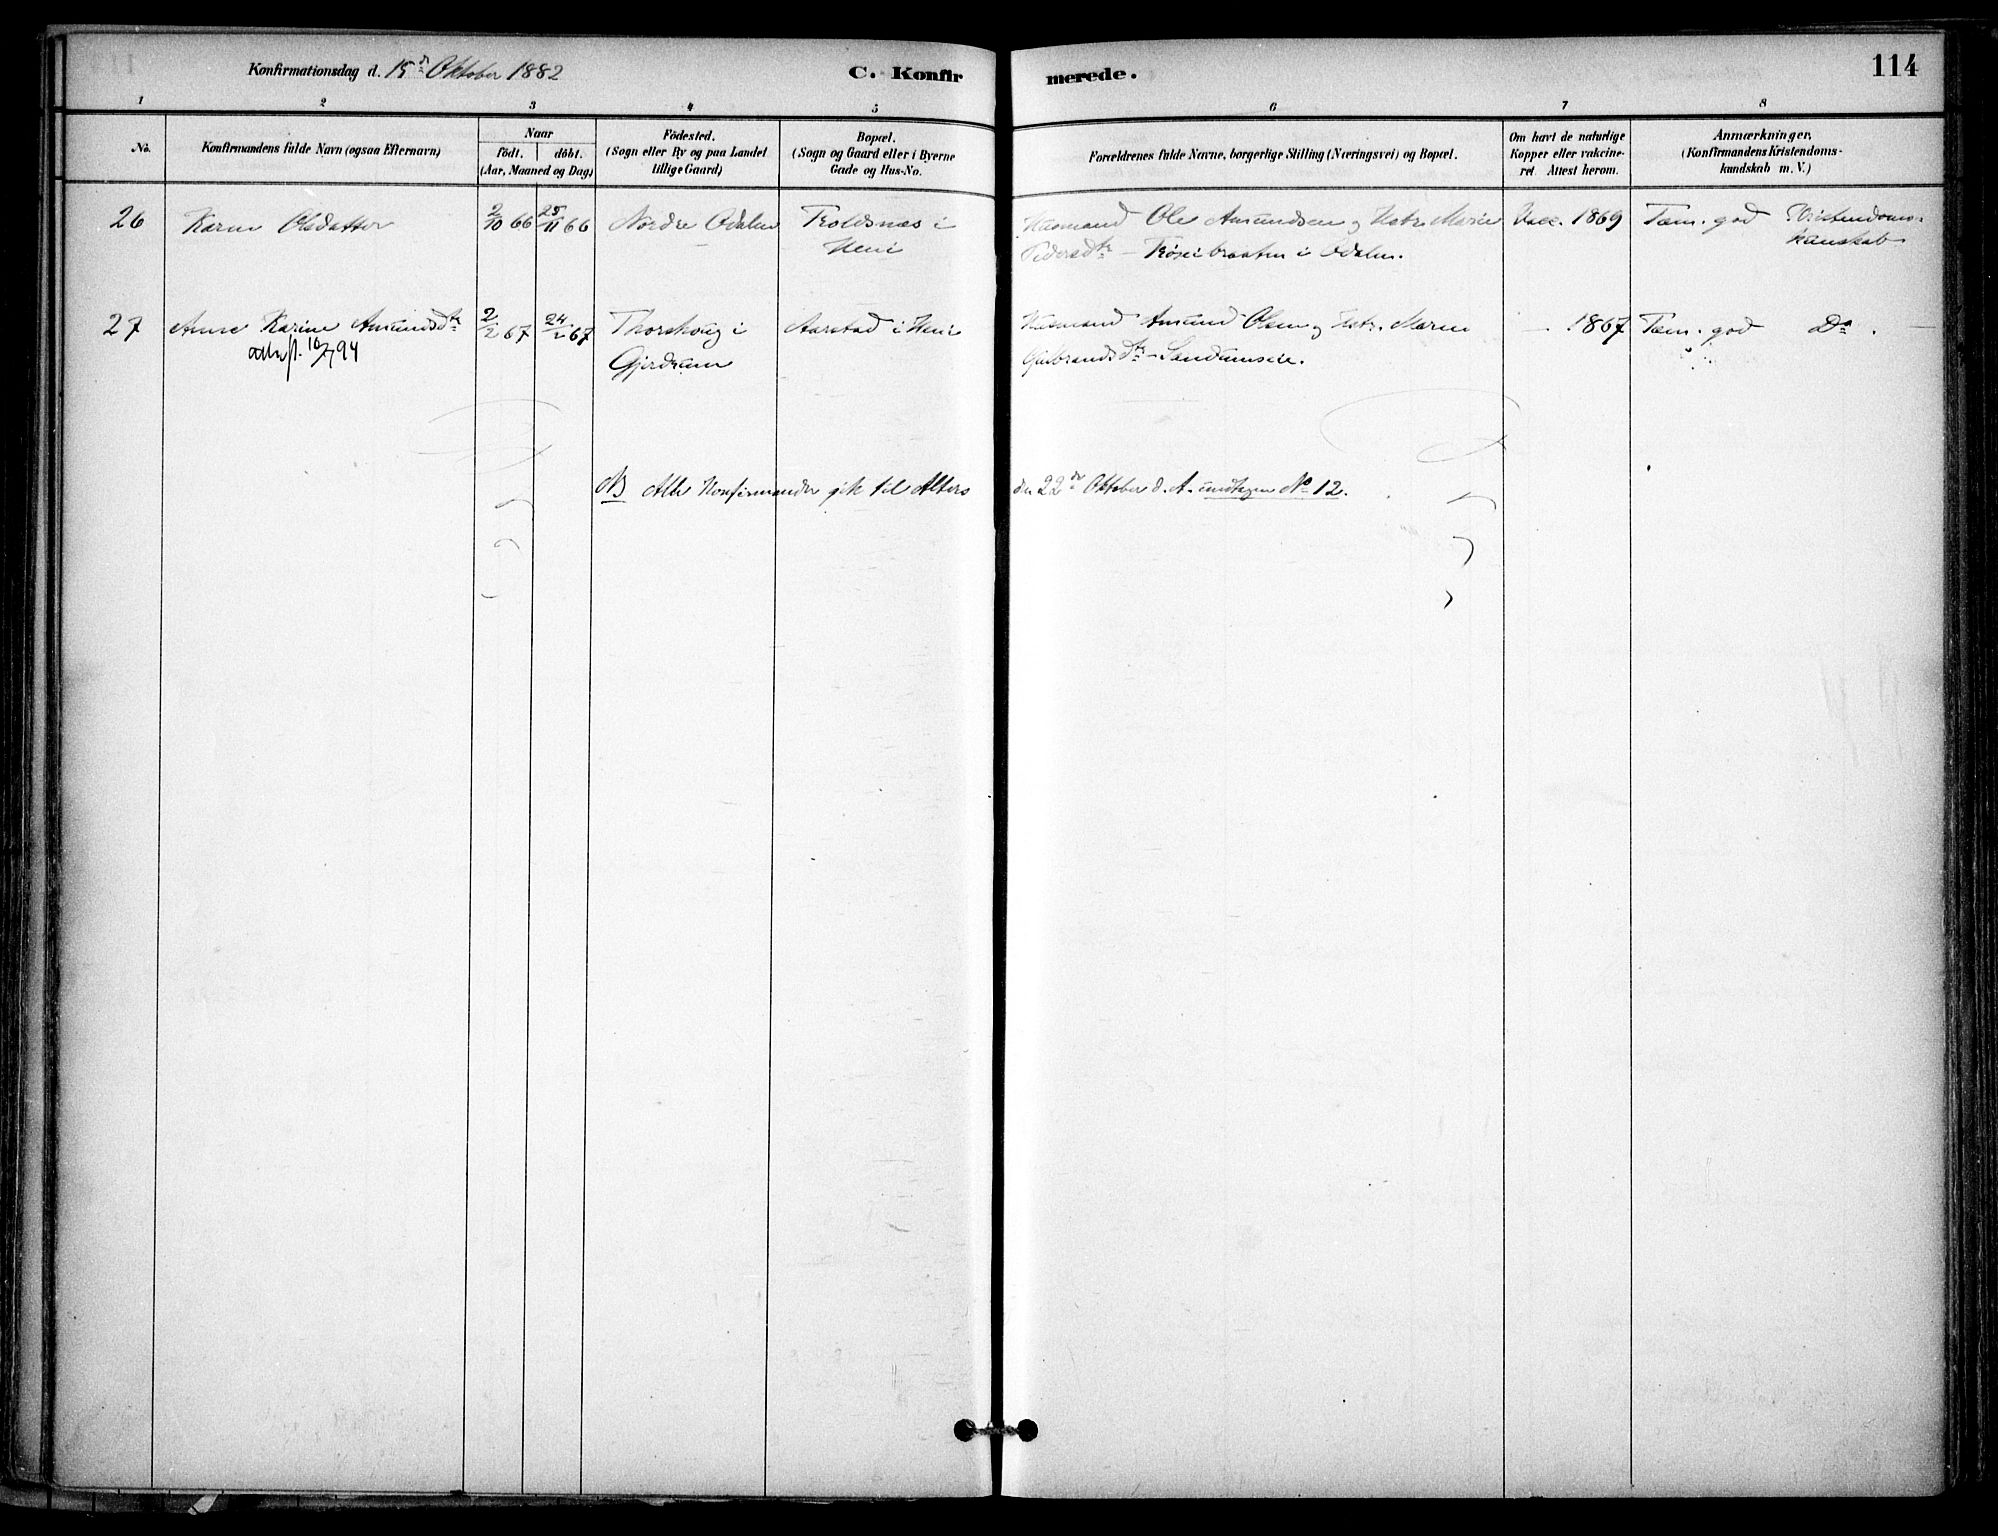 Konfirmationsdag d. 15de Oktober 1882
C. Konfir
merede.
114
1 2 3 4 5 6 7 8
No.
Konfirmandens fulde Navn (ogsaa Efternavn)
Naar
födt. döbt.
(Aar, Maaned og Dag)
Födested.
(Sogn eller By og paa Landet
tillige Gaard)
Bopæl.
(Sogn og Gaard eller i Byerne
Gade og Hus-No.
Forældrenes fulde Navne, borgerlige Stilling (Næringsvei) og Bopæl.
Om havt de naturlige
Kopper eller vakcine-
ret. Attest herom.
Anmærkninger.
(Konfirmandens Kristendoms-
kundskab m. V.)
26 Karen Olsdatter 2/10 66 25/11 66 Nordre Odalen Troldsnæs i
Heni
Husmand Ole Amundsen og Hstr. Marie
Pedersdtr —
i Odalen.
Vacc. 1869 Tem. god Kristendoms-
kunskab
27 Anne Karine Amundsdtr 2/2 67 24/2 67 Thorshoug i Aarstad i Heni
16/7 94
Gjerdrum
Husmand Amund Olsen og Hstr. Maren
Gulbrandsdtr —
— 1867 Tem. god Do . —
NB Alle Konfirmander gik til Alters
den 22de Oktober d. A. undtagen No 12.